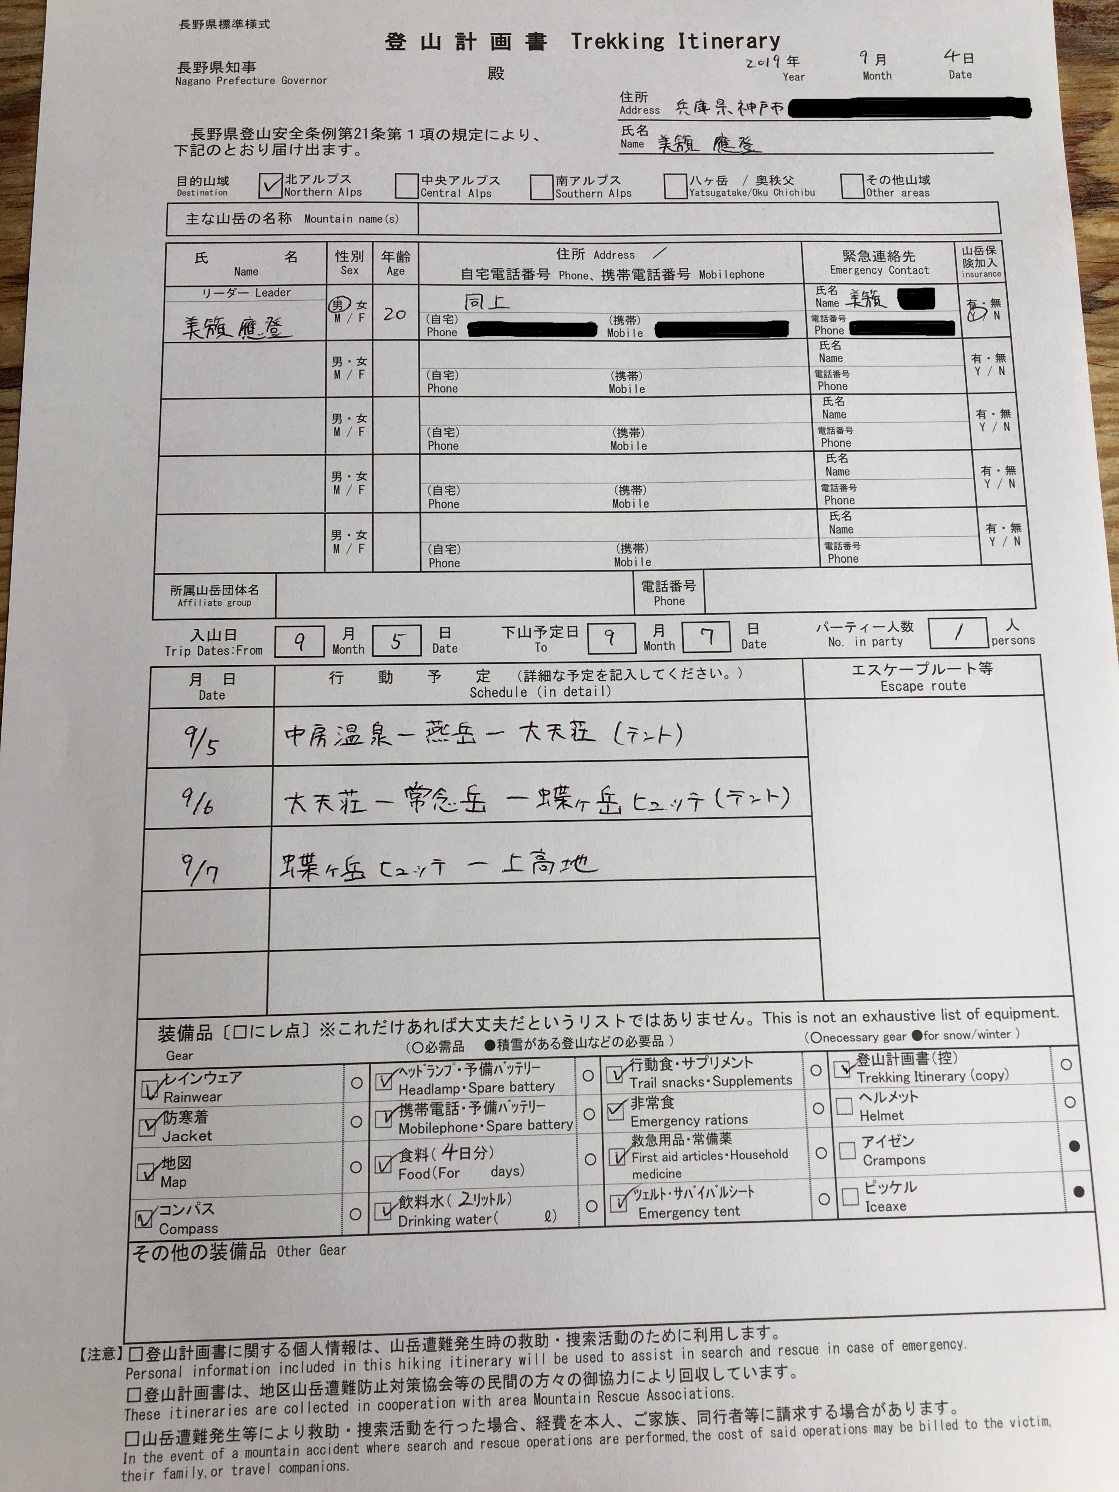 長野県標準様式
登山計画書 Trekking Itinerary
2019年 9月 4日
Year Month Date
長野県知事 殿
Nagano Prefecture Governor
住所
Address 兵庫県、神戸市
氏名
Name 美頷 應登
長野県登山安全条例第21条第1項の規定により、
下記のとおり届け出ます。
目的山域 北アルプス 中央アルプス 南アルプス 八ヶ岳 / 奥秩父 その他山域
Destination Northern Alps Central Alps Southern Alps Yatsugatake/Oku Chichibu Other areas
主な山岳の名称 Mountain name(s)
氏 名 性別 年齢 住所 Address / 緊急連絡先 山岳保険加入
Name Sex Age 自宅電話番号 Phone、携帯電話番号 Mobilephone Emergency Contact insurance
リーダー Leader 男 女 同上 氏名
美頷 應登 M / F 20 Name 美頷 有・無
(自宅) (携帯) 電話番号 Y / N
Phone Mobile Phone
男・女 氏名
M / F Name 有・無
(自宅) (携帯) 電話番号 Y / N
Phone Mobile Phone
男・女 氏名
M / F Name 有・無
(自宅) (携帯) 電話番号 Y / N
Phone Mobile Phone
男・女 氏名
M / F Name 有・無
(自宅) (携帯) 電話番号 Y / N
Phone Mobile Phone
男・女 氏名
M / F Name 有・無
(自宅) (携帯) 電話番号 Y / N
Phone Mobile Phone
所属山岳団体名 電話番号
Affiliate group Phone
入山日 9 月 5 日 下山予定日 9 月 7 日 パーティー人数 1 人
Trip Dates:From Month Date To Month Date No. in party persons
月 日 行 動 予 定 (詳細な予定を記入してください。) エスケープルート等
Date Schedule (in detail) Escape route
9/5 中房温泉ー燕岳ー大天荘(テント)
9/6 大天荘ー常念岳ー蝶ヶ岳ヒュッテ(テント)
9/7 蝶ヶ岳ヒュッテー上高地
装備品〔□にレ点〕※これだけあれば大丈夫だというリストではありません。This is not an exhaustive list of equipment.
Gear (○必需品 ●積雪がある登山などの必要品 ) (○necessary gear ●for snow/winter )
レインウェア ○ ヘッドランプ・予備バッテリー ○ 行動食・サプリメント ○ 登山計画書(控) ○
Rainwear Headlamp・Spare battery Trail snacks・Supplements Trekking Itinerary (copy)
防寒着 ○ 携帯電話・予備バッテリー ○ 非常食 ○ ヘルメット ○
Jacket Mobilephone・Spare battery Emergency rations Helmet
地図 ○ 食料(4日分) ○ 救急用品・常備薬 ○ アイゼン ●
Map Food(For days) First aid articles・Household medicine Crampons
コンパス ○ 飲料水(2リットル) ○ ツェルト・サバイバルシート ○ ピッケル ●
Compass Drinking water( ℓ) Emergency tent Iceaxe
その他の装備品 Other Gear
【注意】□登山計画書に関する個人情報は、山岳遭難発生時の救助・捜索活動のために利用します。
Personal information included in this hiking itinerary will be used to assist in search and rescue in case of emergency.
□登山計画書は、地区山岳遭難防止対策協会等の民間の方々の御協力により回収しています。
These itineraries are collected in cooperation with area Mountain Rescue Associations.
□山岳遭難発生等により救助・捜索活動を行った場合、経費を本人、ご家族、同行者等に請求する場合があります。
In the event of a mountain accident where search and rescue operations are performed,the cost of said operations may be billed to the victim,
their family,or travel companions.